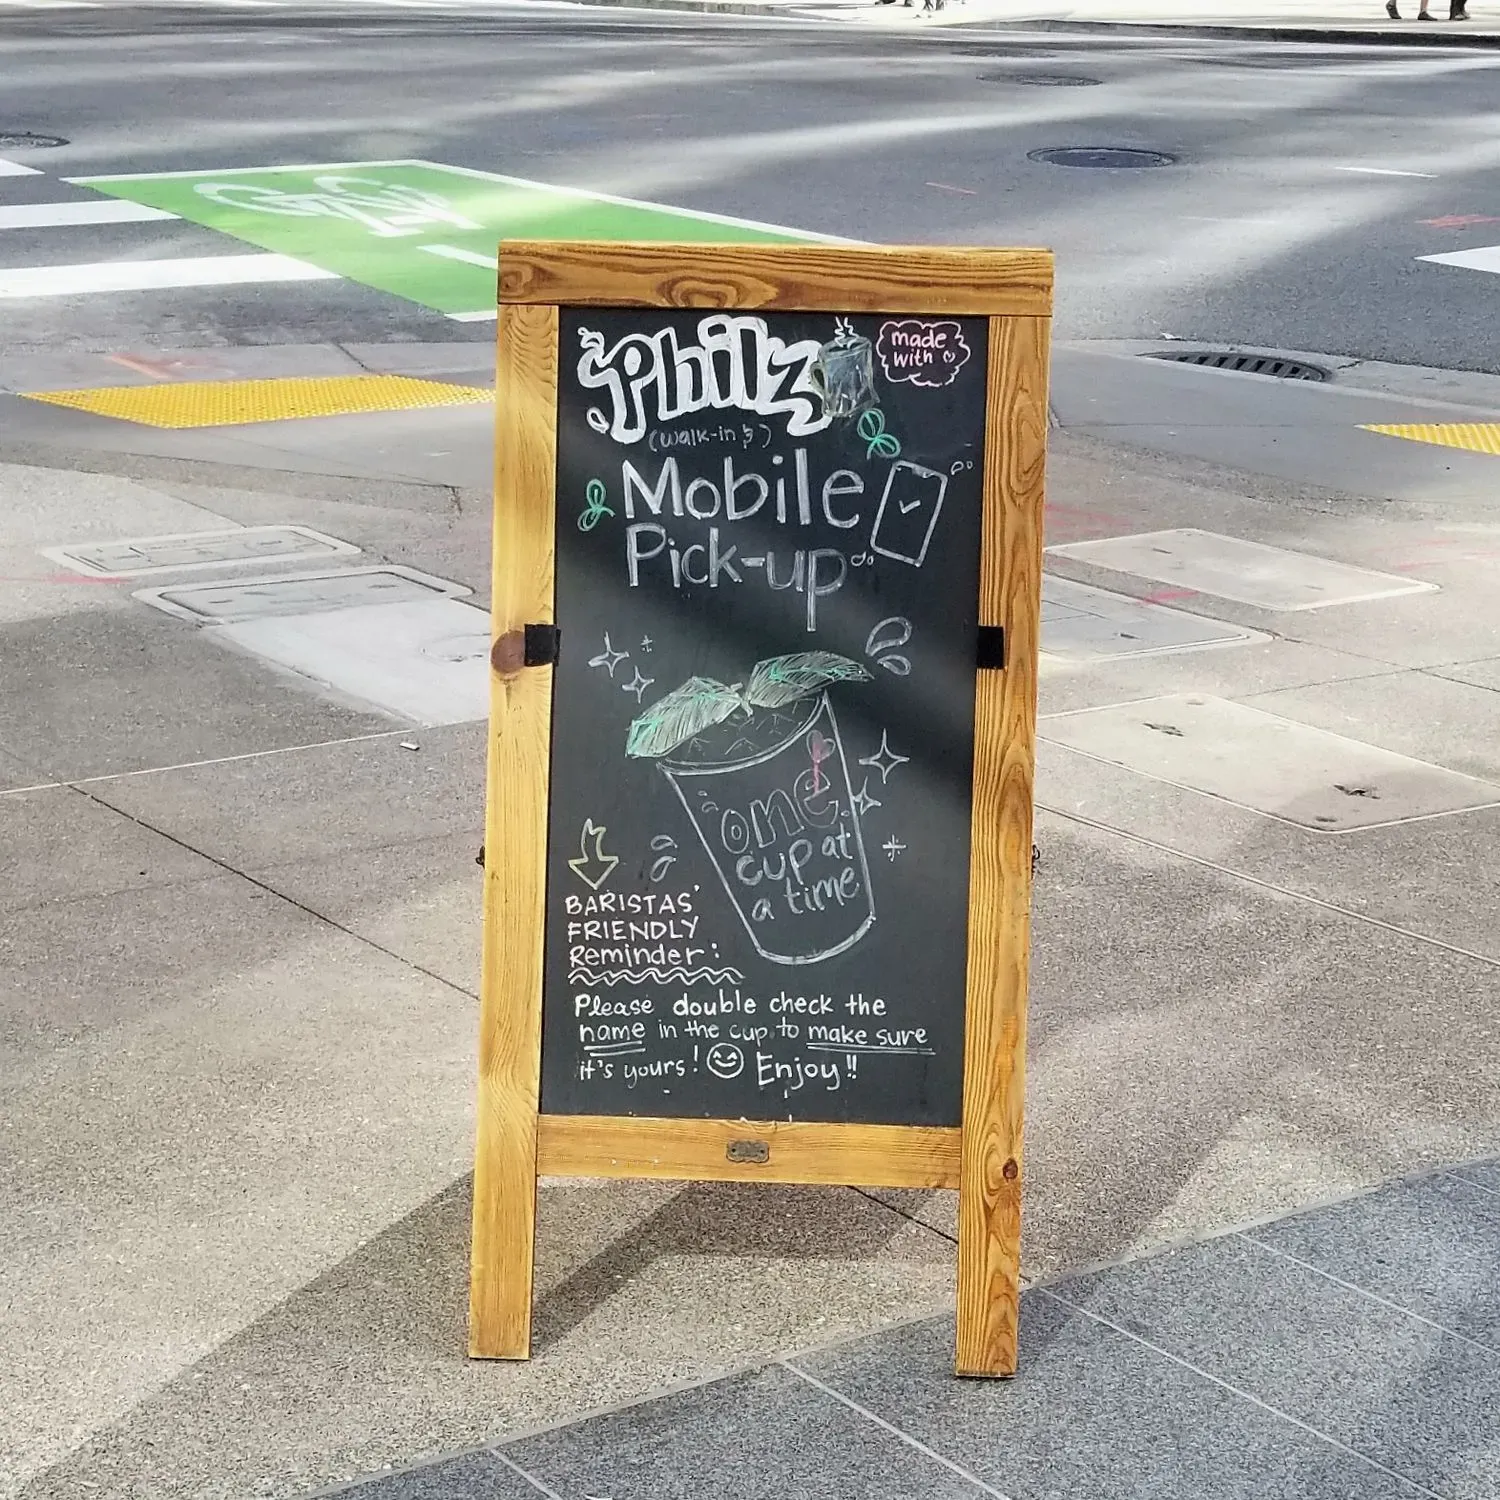 Philz
made
with
(walk-in &)
Mobile
Pick-up
one
cup at
a time
BARISTAS'
FRIENDLY
Reminder:
Please double check the
name in the cup to make sure
it's yours! Enjoy!!